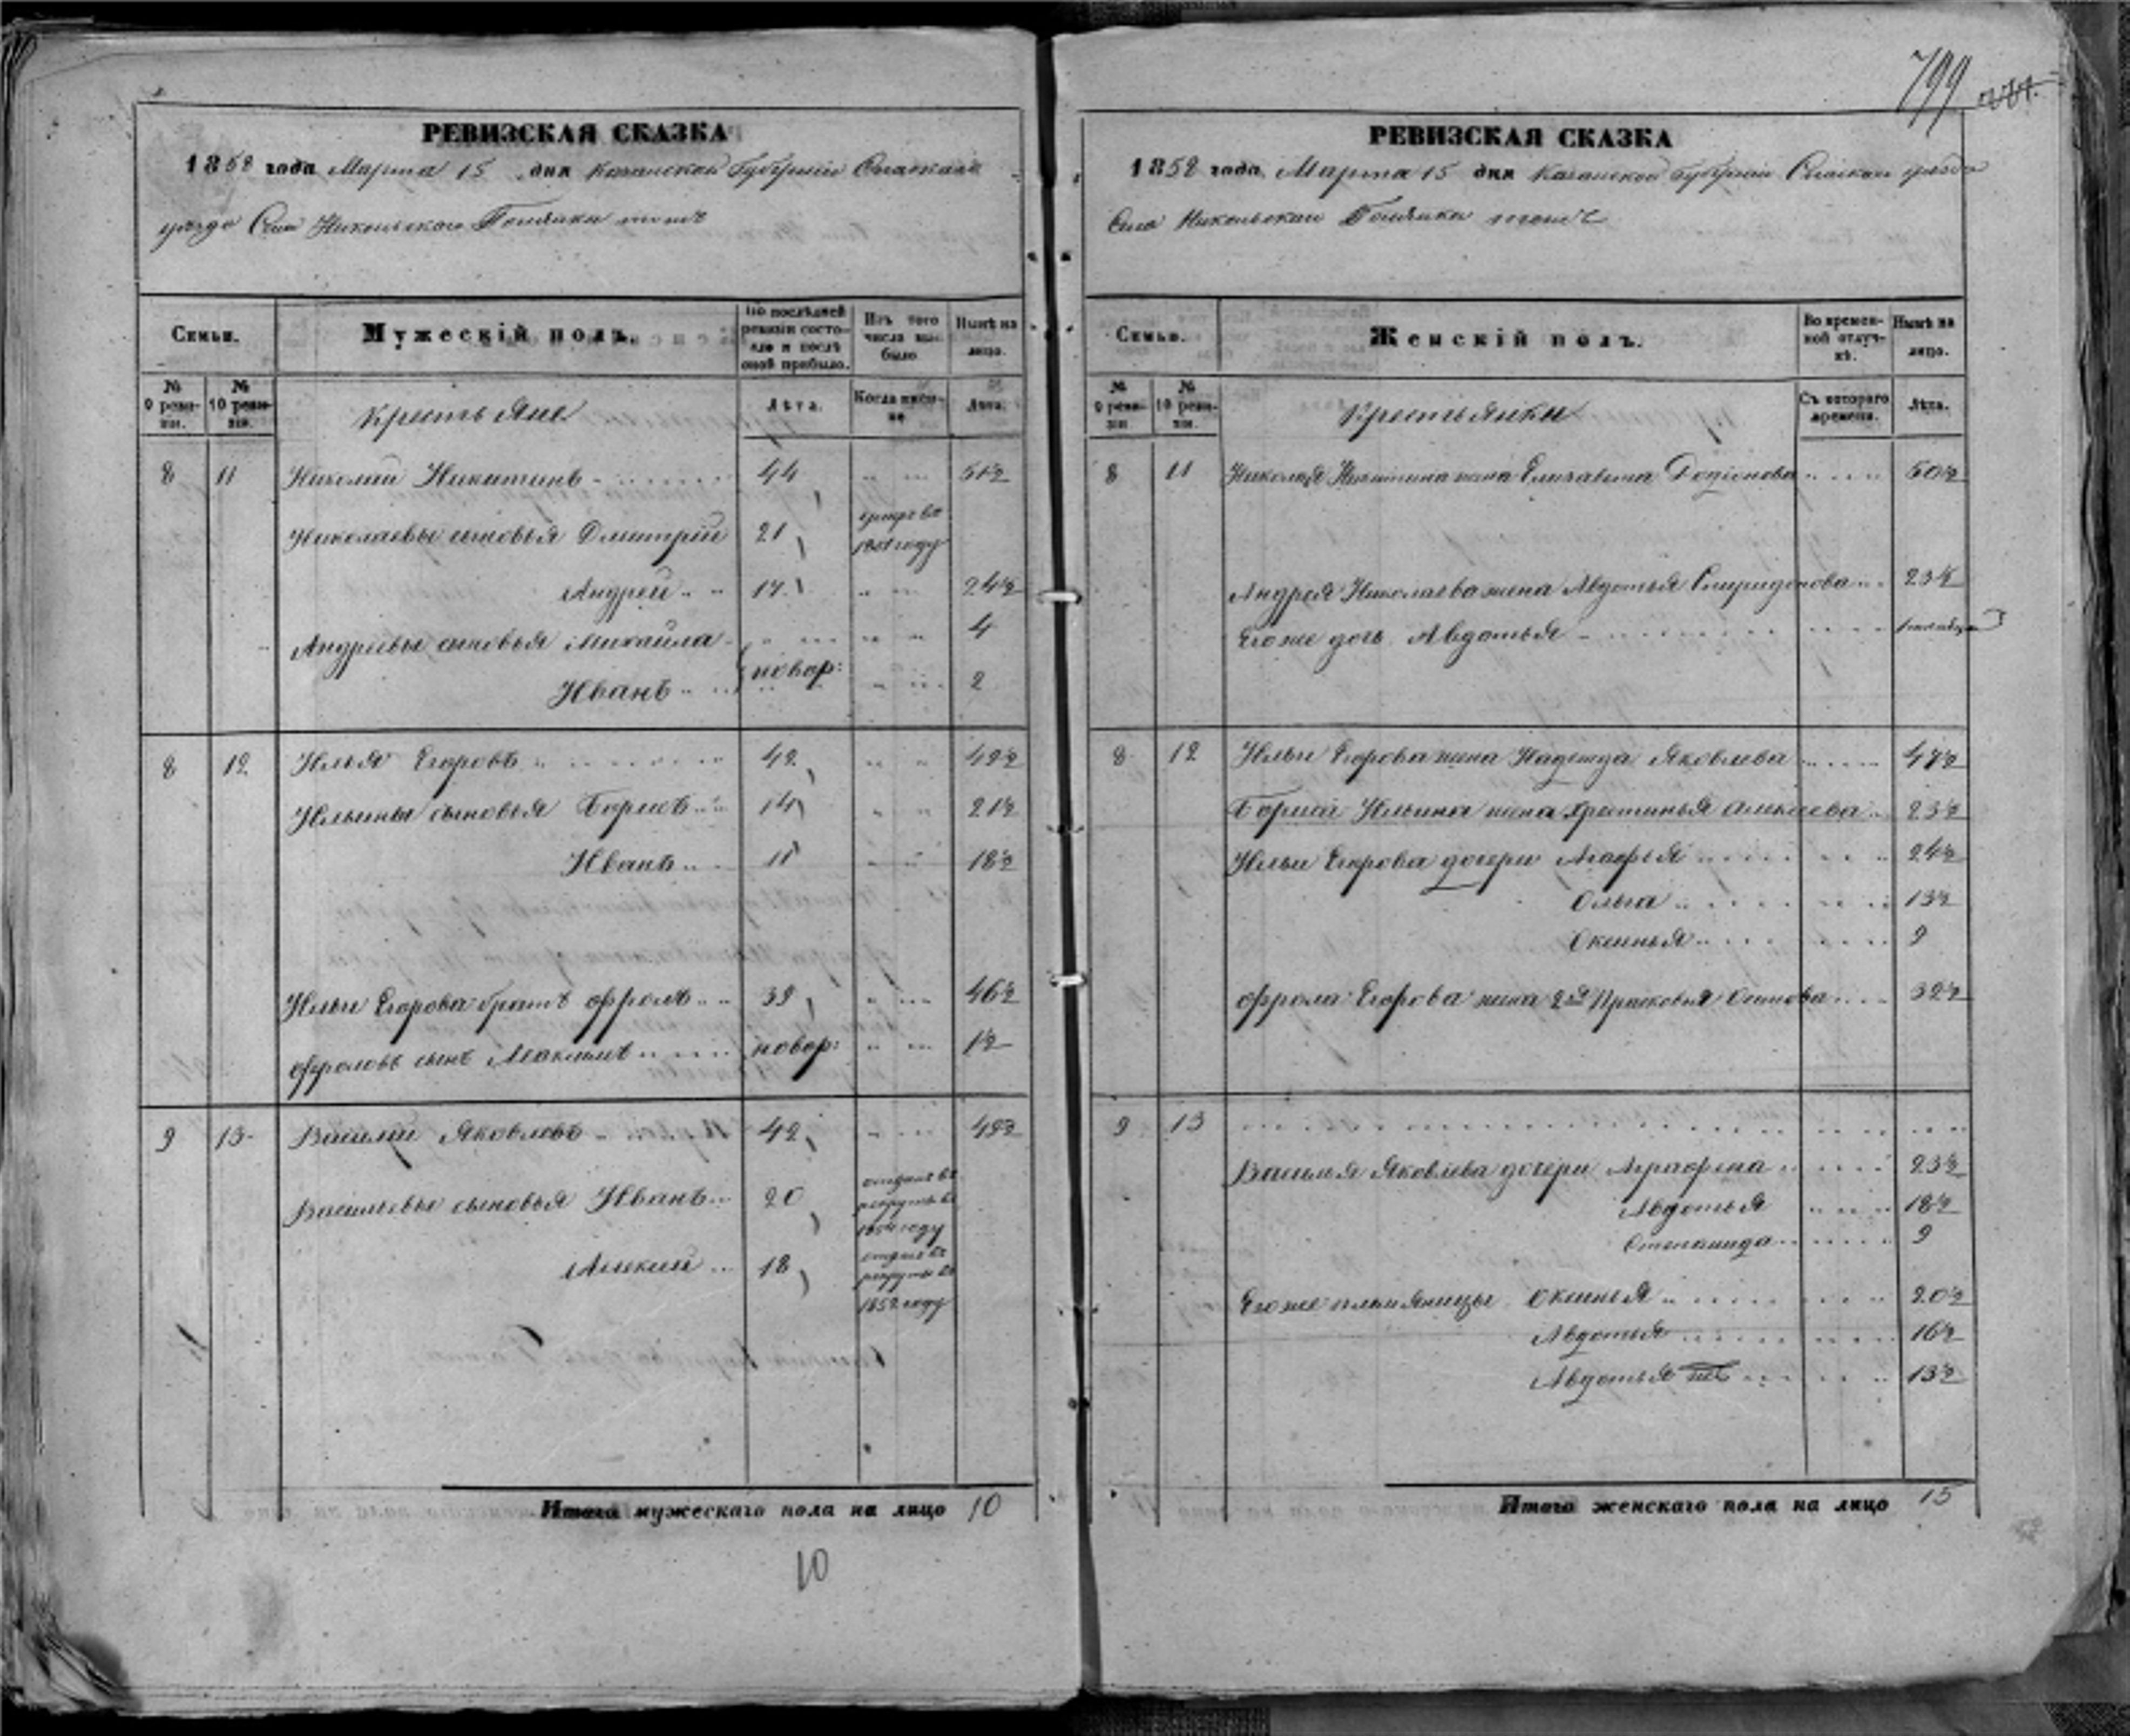 799
РЕВИЗСКАЯ СКАЗКА
1858 года Марта 15 дня Казанской Губернии Спаскаго
уезда Села Никольскаго тожъ
Семьи.
Мужескій полъ.
По послѣдней ревизіи состояло и послѣ оной прибыло.
Изъ того числа выбыло
Нынѣ на лицо.
№ 9 ревизіи.
№ 10 ревизіи.
Крестьяне
Лѣта.
Когда именно
Лѣта.
8 11 Николай Никитинъ 44 51½
Николаевы сыновья Дмитрій 21 умре въ
году
Андрей 17 24½
Андреевы сыновья Михайла 4
новор:
Иванъ 2
8 12 Илья Егоровъ 42 49½
Ильины сыновья Борисъ 14 21½
Иванъ 11 18½
Ильи Егорова братъ Фролъ 39 46½
Фроловъ сынъ Максимъ новор: 1½
9 13 Василій Яковлевъ 42 49½
Васильевы сыновья Иванъ 20 отданъ въ
рекруты въ
1854 году
Алексей 18 отданъ въ
рекруты въ
1852 году
Итого мужескаго пола на лицо 10
10
РЕВИЗСКАЯ СКАЗКА
1858 года Марта 15 дня Казанской Губерніи Спаскаго уезда
Села Никольскаго тожъ
Семьи.
Женскій полъ.
Во временной отлучкѣ.
Нынѣ на лицо.
№ 9 ревизіи
№ 10 ревизіи.
Крестьянки
Съ котораго времени.
Лѣта.
8 11 Николая Никитина жена Елизавета Родіонова 50½
Андрея Николаева жена Авдотья Спиридонова 23½
Его же дочь Авдотья
8 12 Ильи Егорова жена Надежда Яковлева 47½
Бориса Ильина жена Христинья Алексеева 23½
Ильи Егорова дочери Агафья 24½
Ольга 13½
Оксинья 9
Фрола Егорова жена 2я Прасковья Осипова 32½
9 13
Василья Яковлева дочери Аграфена 23½
Авдотья 18½
Степанида 9
Его же племяницы Оксинья 20½
Авдотья 16½
Авдотья 13½
Итого женскаго пола на лицо 15